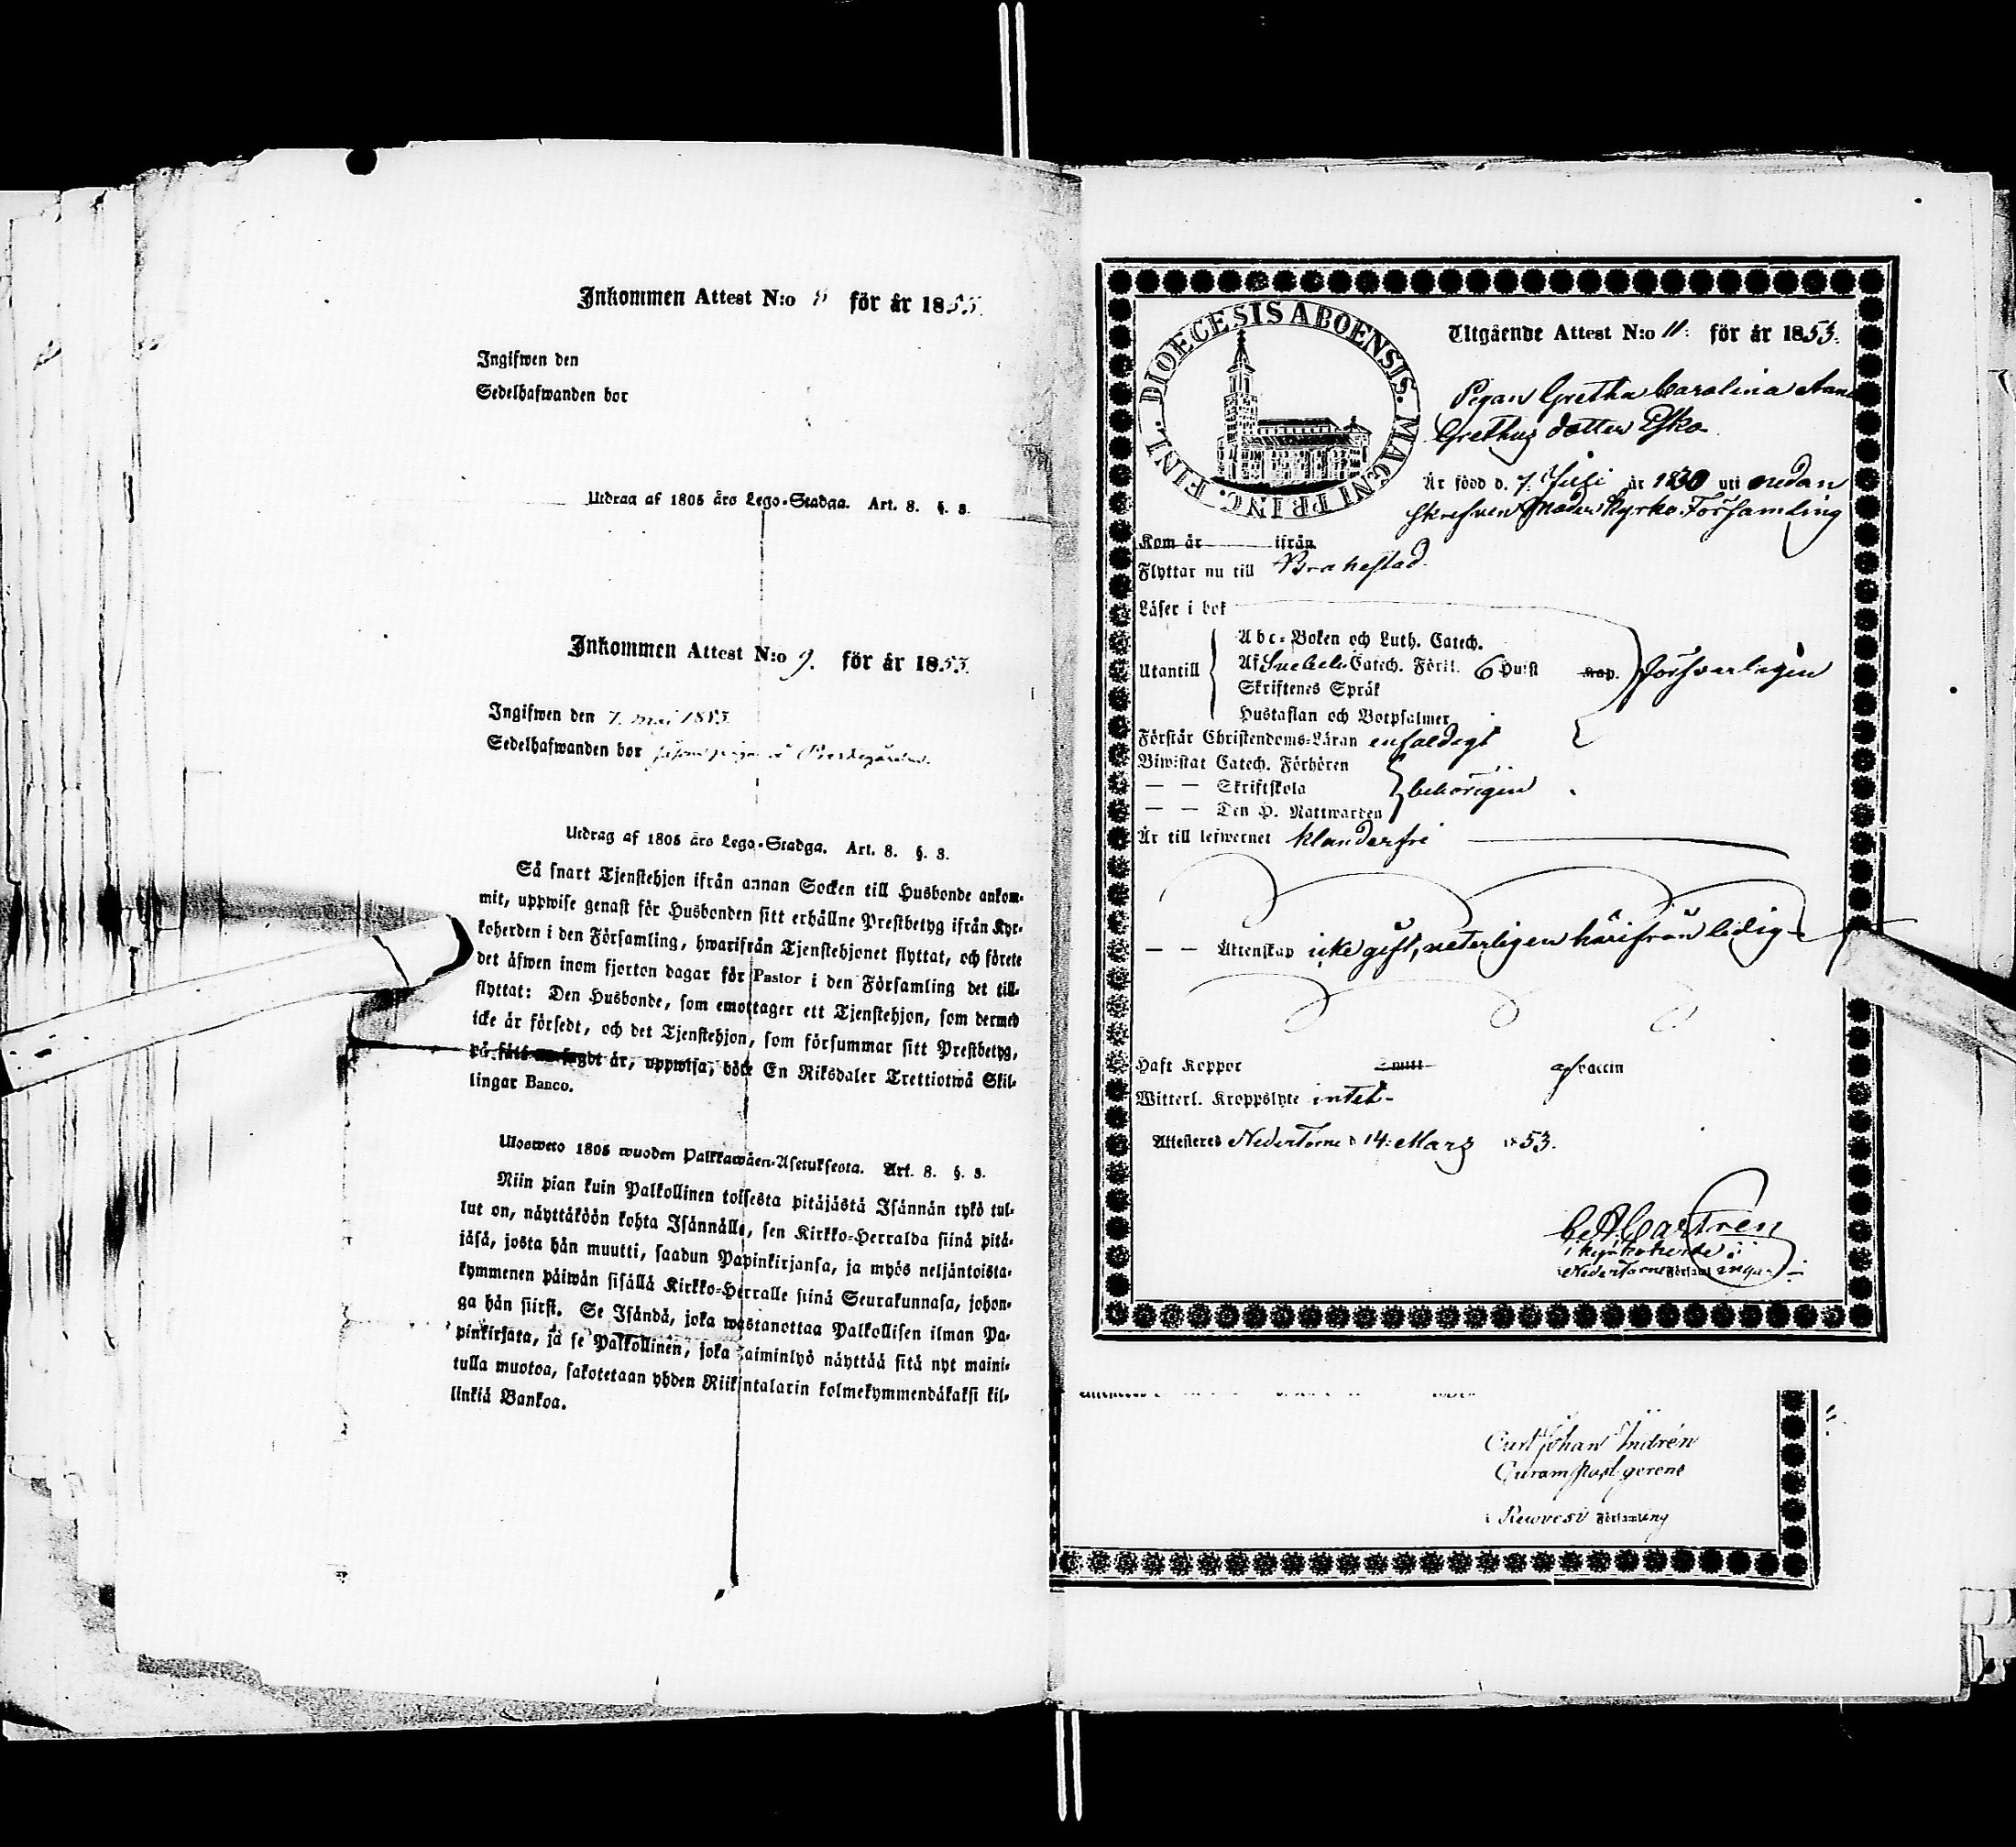 Inkommen Attest N:o 8 för år 1853.
Ingifwen den
Sedelhafwanden bor
Utdrag af 1805 års Lego-Stadga. Art. 8. §. 3.
Inkommen Attest N:o 9. för år 1853.
Ingifwen den 7. Maj 1853
Sedelhafwanden bor
Utdrag af 1805 års Lego-Stadga. Art. 8. §. 3.
Så snart Tjenstehjon ifrån annan Socken till Husbonde ankom-
mit, uppwise genast för Husbonden sitt erhållne Prestbetyg ifrån Kyr-
koherden i den Församling, hwarifrån Tjenstehjonet flyttat, och förete
det äfwen inom fjorton dagar för Pastor i den Församling det till-
flyttat: Den Husbonde, som emottager ett Tjenstehjon, som dermed
icke är försedt, och det Tjenstehjon, som försummar sitt Prestbetyg,
på sätt nu sagdt är, uppwisa, böte En Riksdaler Trettiotwå Skil-
lingar Banco.
Ulosweto 1805 wuoden Palkkawäen-Asetuksesta. Art. 8. §. 3.
Niin pian kuin Palkollinen toisesta pitäjästä Isännän tykö tul-
lut on, näyttäköön kohta Isännälle, sen Kirkko-Herralda siinä pitä-
jäsä, josta hän muutti, saadun Papinkirjansa, ja myös neljäntoista-
kymmenen päiwän sisällä Kirkko-Herralle siinä Seurakunnasa, johon-
ga hän siirsi. Se Isändä, joka wastanottaa Palkollisen ilman Pa-
pinkirjata, ja se Palkollinen, joka laiminlyö näyttää sitä nyt maini-
tulla muotoa, sakotetaan yhden Riikintalarin kolmekymmendäkaksi kil-
linkiä Bankoa.
DIOECESIS ABOENSIS. MAGNI PRINC. FINL.
Utgående Attest N:o 11: för år 1853.
Pigan Gretha Carolina
Grethas dotter Esko
Är född d. 7. Juli år 1830 uti nedan
skrefven Moder Kyrko Församling
Kom år ifrån
Flyttar nu till Brahestad.
Läser i bok
Abc-Boken och Luth. Catech.
Utantill Af Svebeli Catech. Förkl. 6 Hufst kap. försvarligen
Skriftenes Språk
Hustaflan och Botpsalmer
Förstår Christendoms-Läran enfaldigt
Biwistat Catech. Förhören
— — Skriftskola behörigen
— — Den H. Nattwarden
Är till lefwernet klanderfri
— — Äktenskap icke gift, veterligen härifrån ledig
Haft Koppor af vaccin
Witterl. Kroppslyte intet-
Attesteras NederTorne d 14: Mars 1853.
C A Castrén
Kyrkoherde i
NederTorne Församlingar
Carl Johan Indrén
Curam past. gerens
i Rewvesi Församling